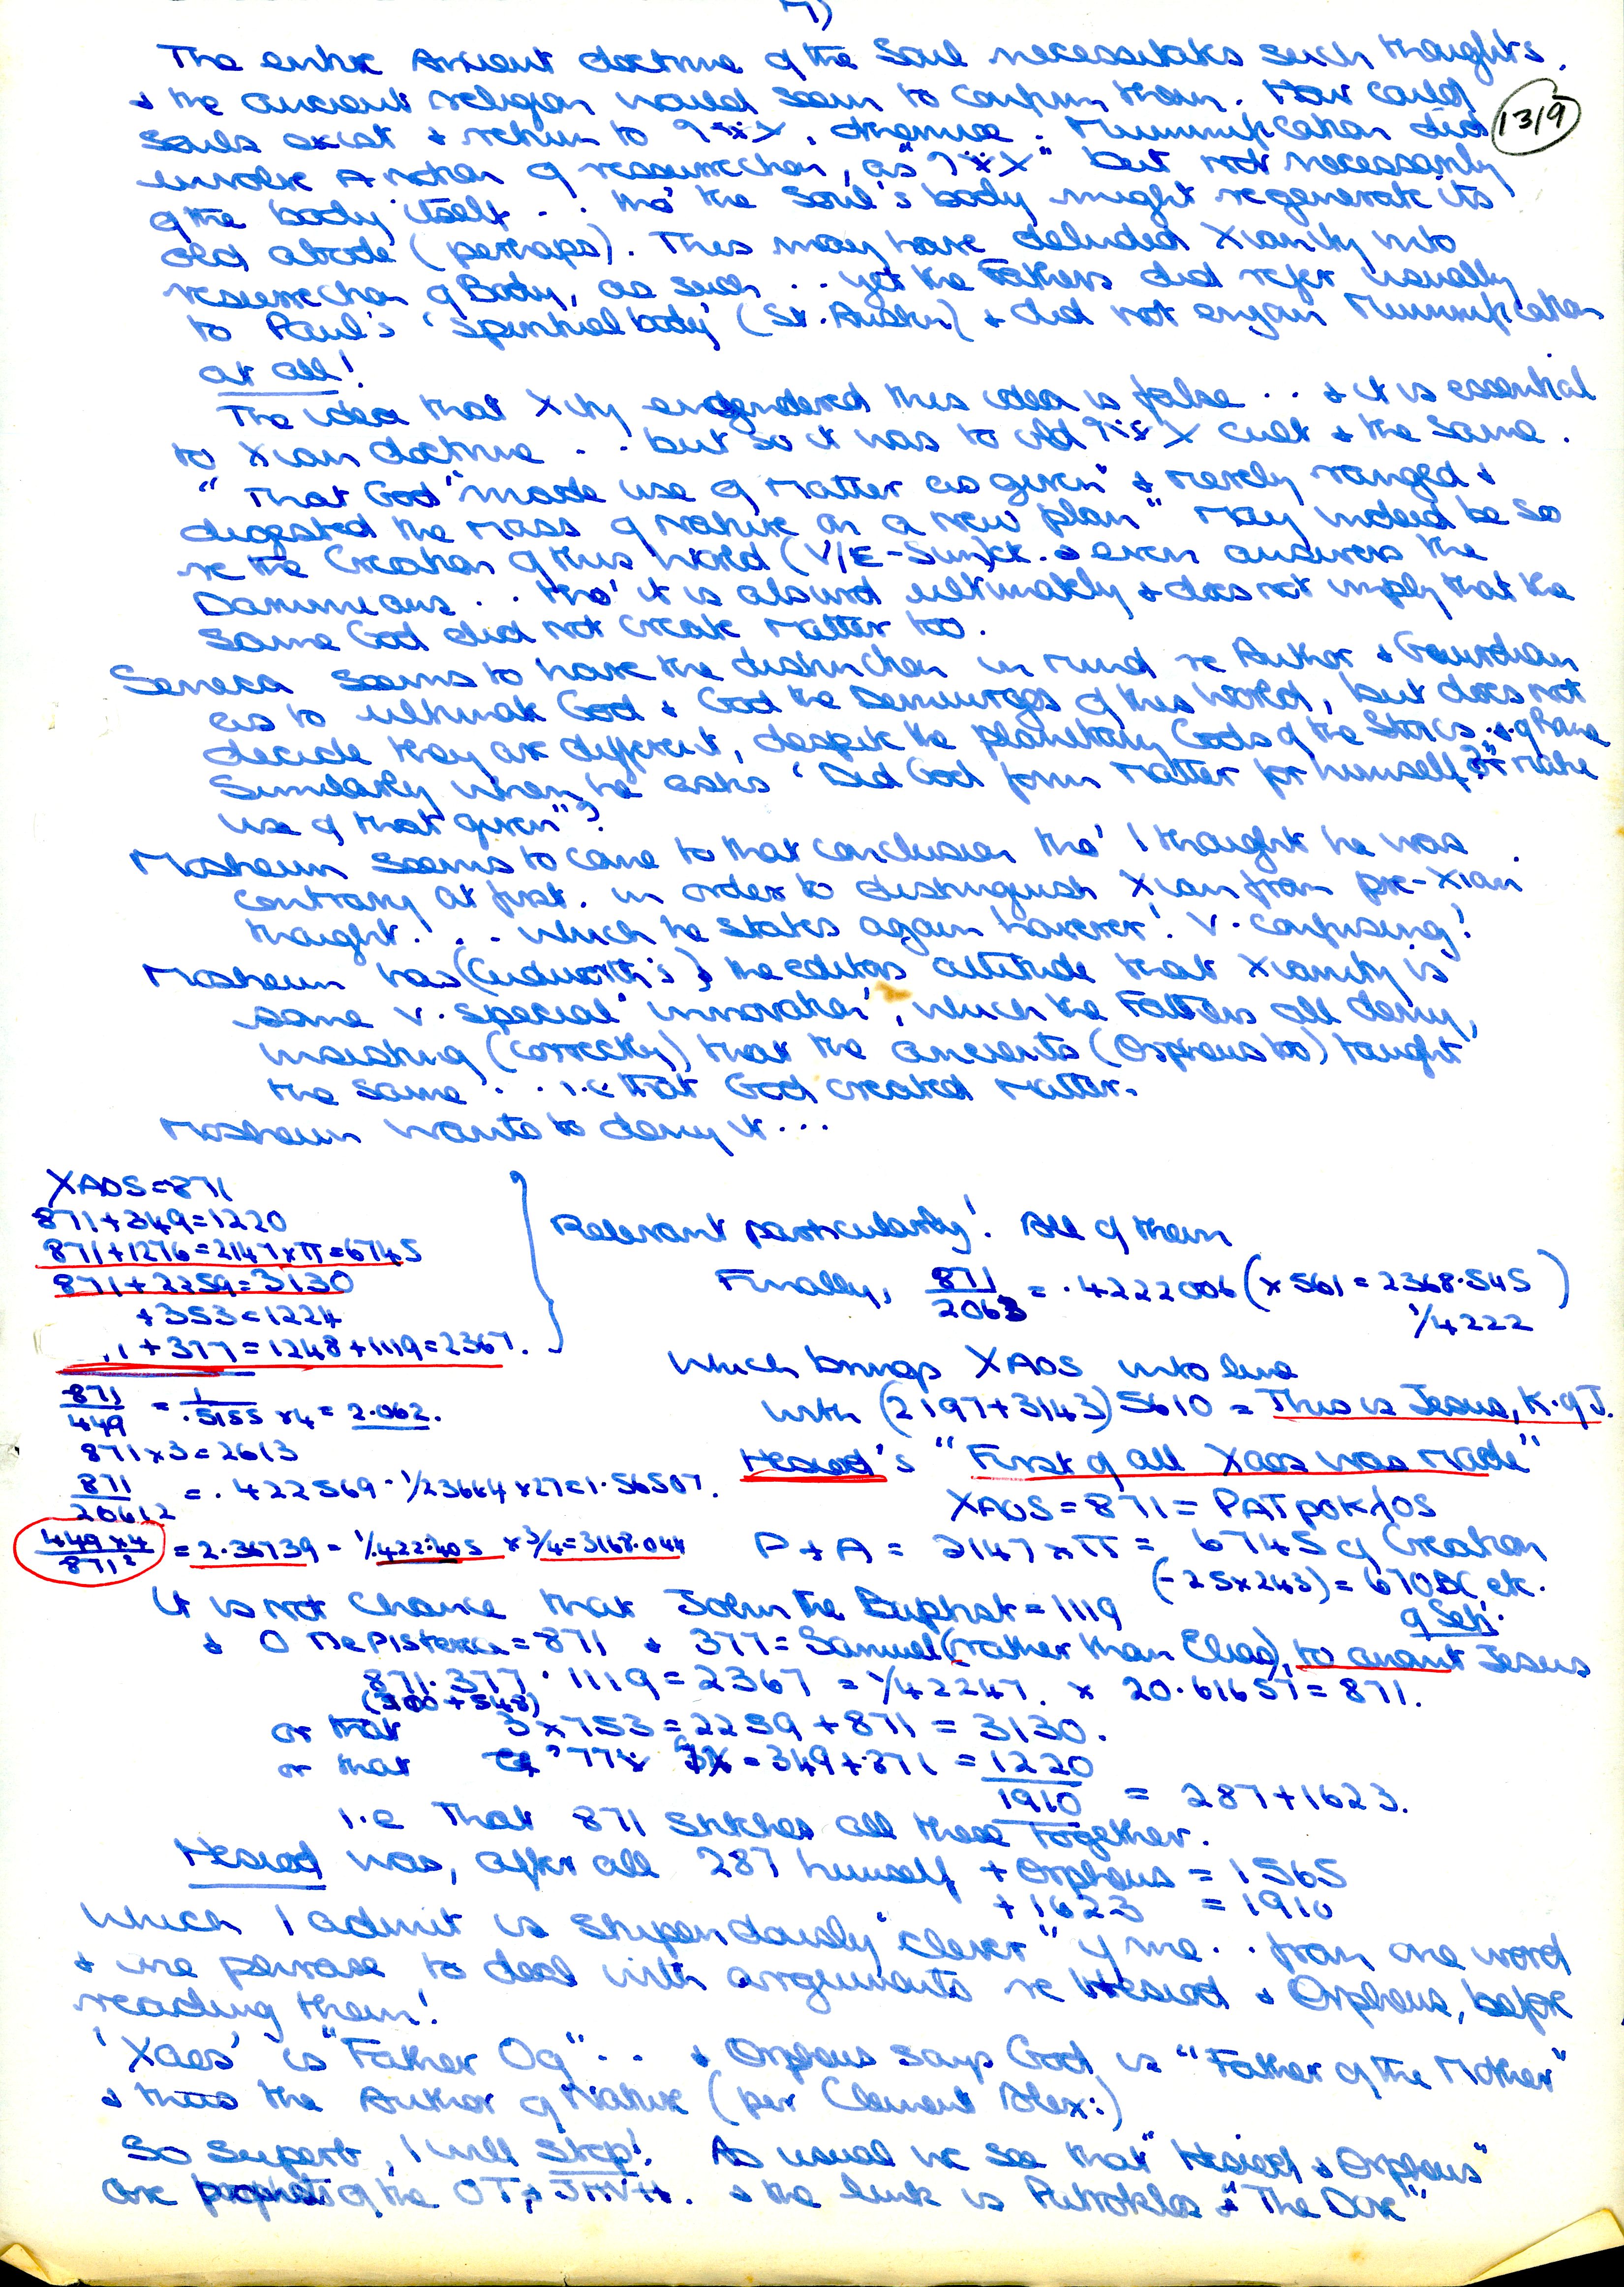 7)
1319
The entire Ancient doctrine of the Soul necessitates such thoughts,
& the ancient religion would seem to confirm them. How could
Souls exist & return to otherwise. Mummification did
involve A notion of ressurrection, as but not necessarily
of the body itself . . tho' the Soul's body might regenerate its
old abode (perhaps). This may have deluded Xianity into
resurrection of Body, as such . . yet the Fathers did refer usually
to Paul's 'spiritual body' (St. Austin) & did not enjoin Mummification
at all!
The idea that Xity engendered this idea is false . . & it is essential
to Xian doctrine . . but so it was to old cult & the same.
"That God "made use of matter as given" & merely ranged &
digested the mass of nature on a new plan" may indeed be so
re the Creation of this world (V/E-Sun)ex. & even answers the
. . tho' it is absurd ultimately & does not imply that the
same God did not create matter too.
Seneca seems to have the distinction in mind re Author & Guardian
as to ultimate God & God the Demiurgos of this World, but does not
decide they are different, despite the planetary Gods of the Stoics & of Rome
Similarly when he asks 'Did God form matter for himself or make
use of that given"?
Mosheim seems to come to that conclusion tho' I thought he was
contrary at first. in order to distinguish Xian from pre-Xian
thought! . . which he states again however! V. confusing!
Mosheim has (Cudworth's) the editors attitude that Xianity is
some v. special 'innovation', which the Fathers all deny,
insisting (correctly) that the ancients (Orpheus too) taught
the same . . i.e that God created matter.
Mosheim wants to deny it ...
XAOS=871
871+349=1220
871+1276=2147xπ=6745
871+2259=3130
+353=1224
" +377=1248+1119=2367.
Relevant particularly! All of them
Finally, 871/2063 = .4222006 (x561=2368.545
1/4222)
Which brings XAOS into line
with (2197+3143) 5610 = This is Jesus, K. of J.
871/449 = 1/.5155 x4=2.062.
871x3=2613
871/20612 = .422569 - 1/23664 x27=1.56507.
449x4/871² = 2.36739 - 1/.422405 x3/4=3168.044
Hesiod's "First of all Xaos was made"
XAOS=871=PATροκλOS
P+A = 2147xπ = 6745 of Creation
(-25x243)=670BC etc.
of Seti.
It is not Chance that John the Baptist=1119
& 871 & 377=Samuel (rather than Elias), to anoint Jesus
871.377.1119=2367=1/42247. x 20.61657=871.
(200+548)
or that 3x753=2259+871=3130.
or that =349+871=1220
1910 = 287+1623.
i.e That 871 stitches all these together.
Hesiod was, after all 287 himself + Orpheus = 1565
+1623 = 1910
Which I admit is stupendously "clever" of me . . from one word
& one phrase to deal with arguments re Hesiod & Orpheus, before
reading them!
'Xaos' is "Father Og" . . & Orpheus says God is "Father of the Mother"
& thus the Author of Nature (per Clement Alex:)
So superb, I will stop! As usual we see that "Hesiod & Orpheus"
are prophets of the OT, & JHVH. & the link is Patroklos & "The Dove"